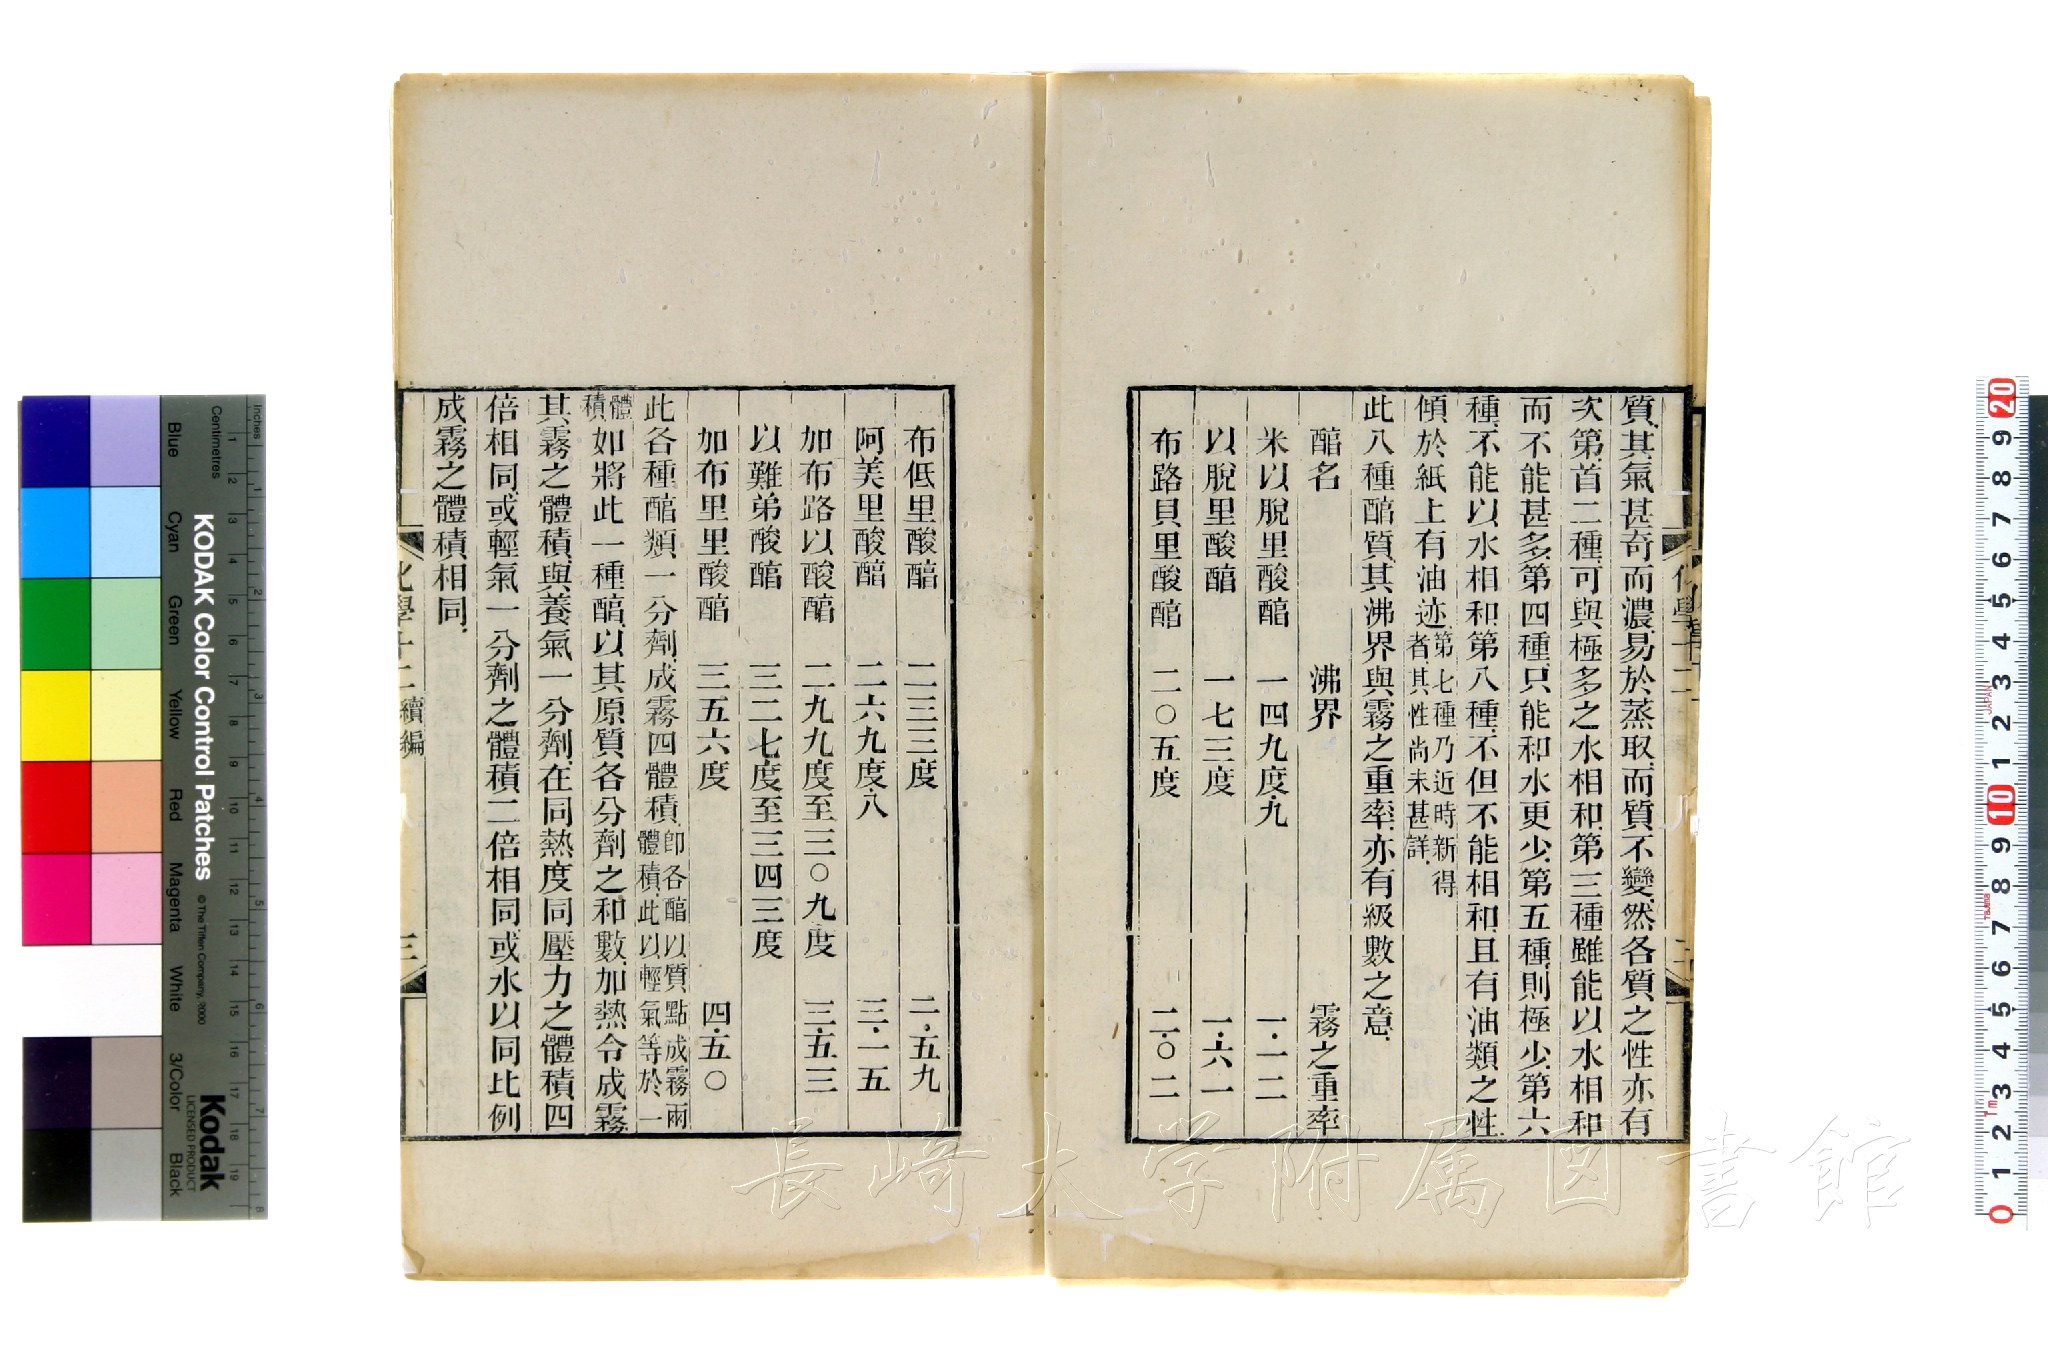 質其氣甚奇而濃易於蒸取而質不變然各質之性亦有
次第首二種可與極多之水相和第三種雖能以水相和
而不能甚多第四種只能和水更少第五種則極少第六
種不能以水相和第八種不但不能相和且有油類之性
傾於紙上有油迹第七種乃近時新得者其性尚未甚詳
此八種醕質其沸界與霧之重率亦有級數之意
醕名 沸界 霧之重率
米以脫里酸醕 一四九度.九 一.一二
以脫里酸醕 一七三度 一.六一
布路貝里酸醕 二〇五度 二.〇二
布低里酸醕 二三三度 二.五九
阿美里酸醕 二六九度.八 三.一五
加布路以酸醕 二九九度至三〇九度 三.五三
以難弟酸醕 三二七度至三四三度
加布里里酸醕 三五六度 四.五〇
此各種醕類一分劑成霧四體積即各醕以質點成霧兩體積此以輕氣等於一
體積如將此一種醕以其原質各分劑之和數加熱令成霧
其霧之體積與養氣一分劑在同熱度同壓力之體積四
倍相同或輕氣一分劑之體積二倍相同或水以同比例
成霧之體積相同
化學十二 續編 三
長崎大学附属図書館
KODAK Color Control Patches
© The Tiffen Company, 2000
Kodak
LICENSED PRODUCT
Inches
Centimetres
Blue
Cyan
Green
Yellow
Red
Magenta
White
3/Color
Black
JAPAN